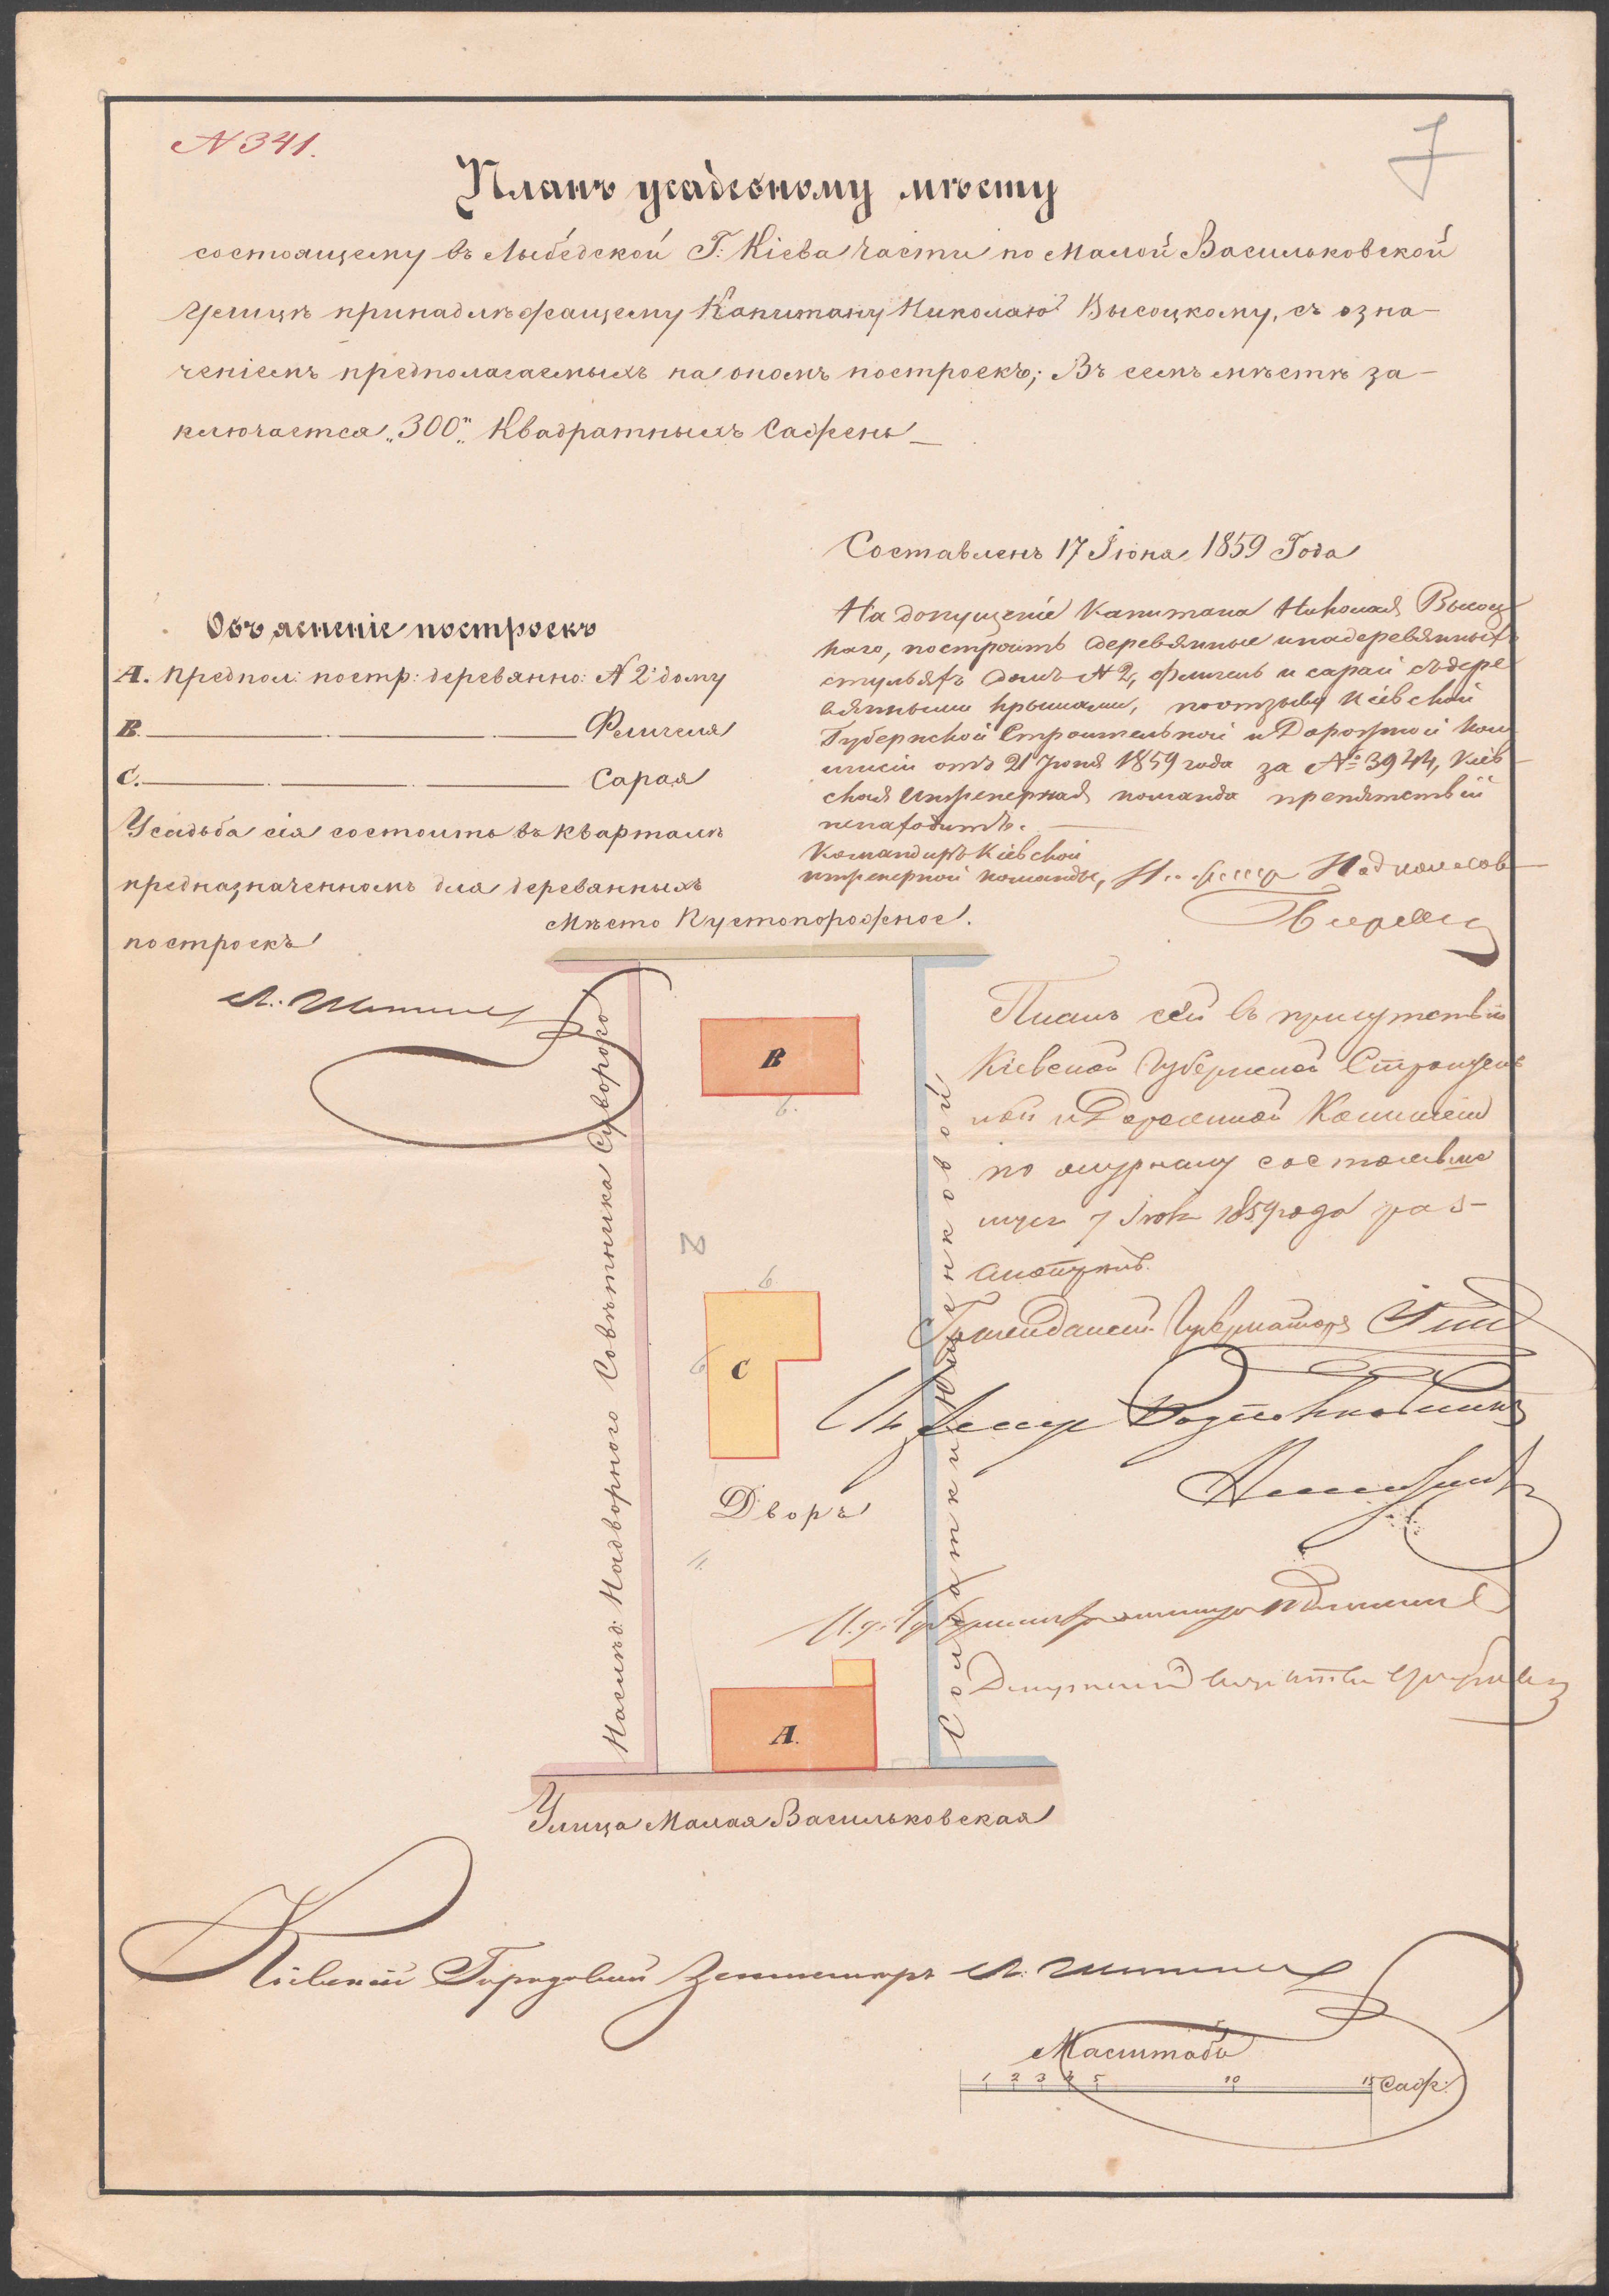 N 341.
7
Планъ усадебному мѣсту
состоящему въ Лыбедской Г: Кіева части по Малой Васильковской
улицѣ принадлежащему Капитану Николаю Высоцкому, съ озна–
ченіемъ предполагаемыхъ на ономъ построекъ; Въ семъ мѣстѣ за–
ключается „300„ Квадратныхъ Сажень
Составленъ 17 Іюна 1859 Года
Объясненіе построекъ
А. Предпол: постр: деревянно: N 2 дому
В. Флигеля
С. Сарая
Усадьба сія состоитъ въ кварталѣ
предназначенномъ для деревянныхъ
построекъ
На допущеніе Капитана Николая Высоц
каго, построить деревянные на деревянныхъ
стульяхъ домъ N 2, флигель и сарай съ дере
вянными крышами, по отзыву Кіевской
Губернской Строительной и Дорожной Ком
мисіи отъ 21 Іюня 1859 года за № 3944, Кіев
ская Инженерная команда препятствій
ненаходитъ.
Командиръ Кіевской
инженерной команды,
Мѣсто Пустопорожное.
Планъ сей въ присутствіи
Кіевской Губернской Строитель
ной и Дорожной Комисіи
по журналу состоявше
муся 7 Іюля 1859 года раз–
смотрѣнъ.
Гражданскій Губернаторъ
Наслѣд: Надворного Совѣтника Суворого
В
6.
2
6
6
С
Дворъ
11.
А.
Улица Малая Васильковская
Кіевскій Городовый Землемѣръ
Масштабъ
1 2 3 4 5 10 15 Саж: